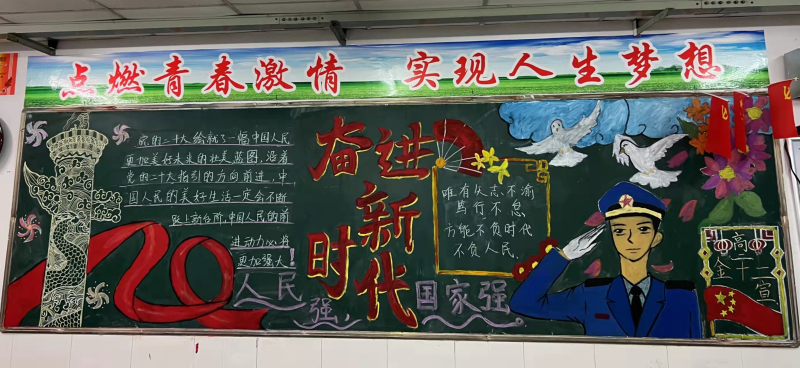 点燃青春激情 实现人生梦想
党的二十大绘就了一幅中国人民
更加美好未来的壮美蓝图，沿着
党的二十大指引的方向前进，中
国人民的美好生活一定会不断
踏上新台阶，中国人民的前
进动力必将
更加强大！
人民
强，
国家强
奋进
新
时代
唯有矢志不渝
笃行不怠
方能不负时代
不负人民.
高二
金干宣